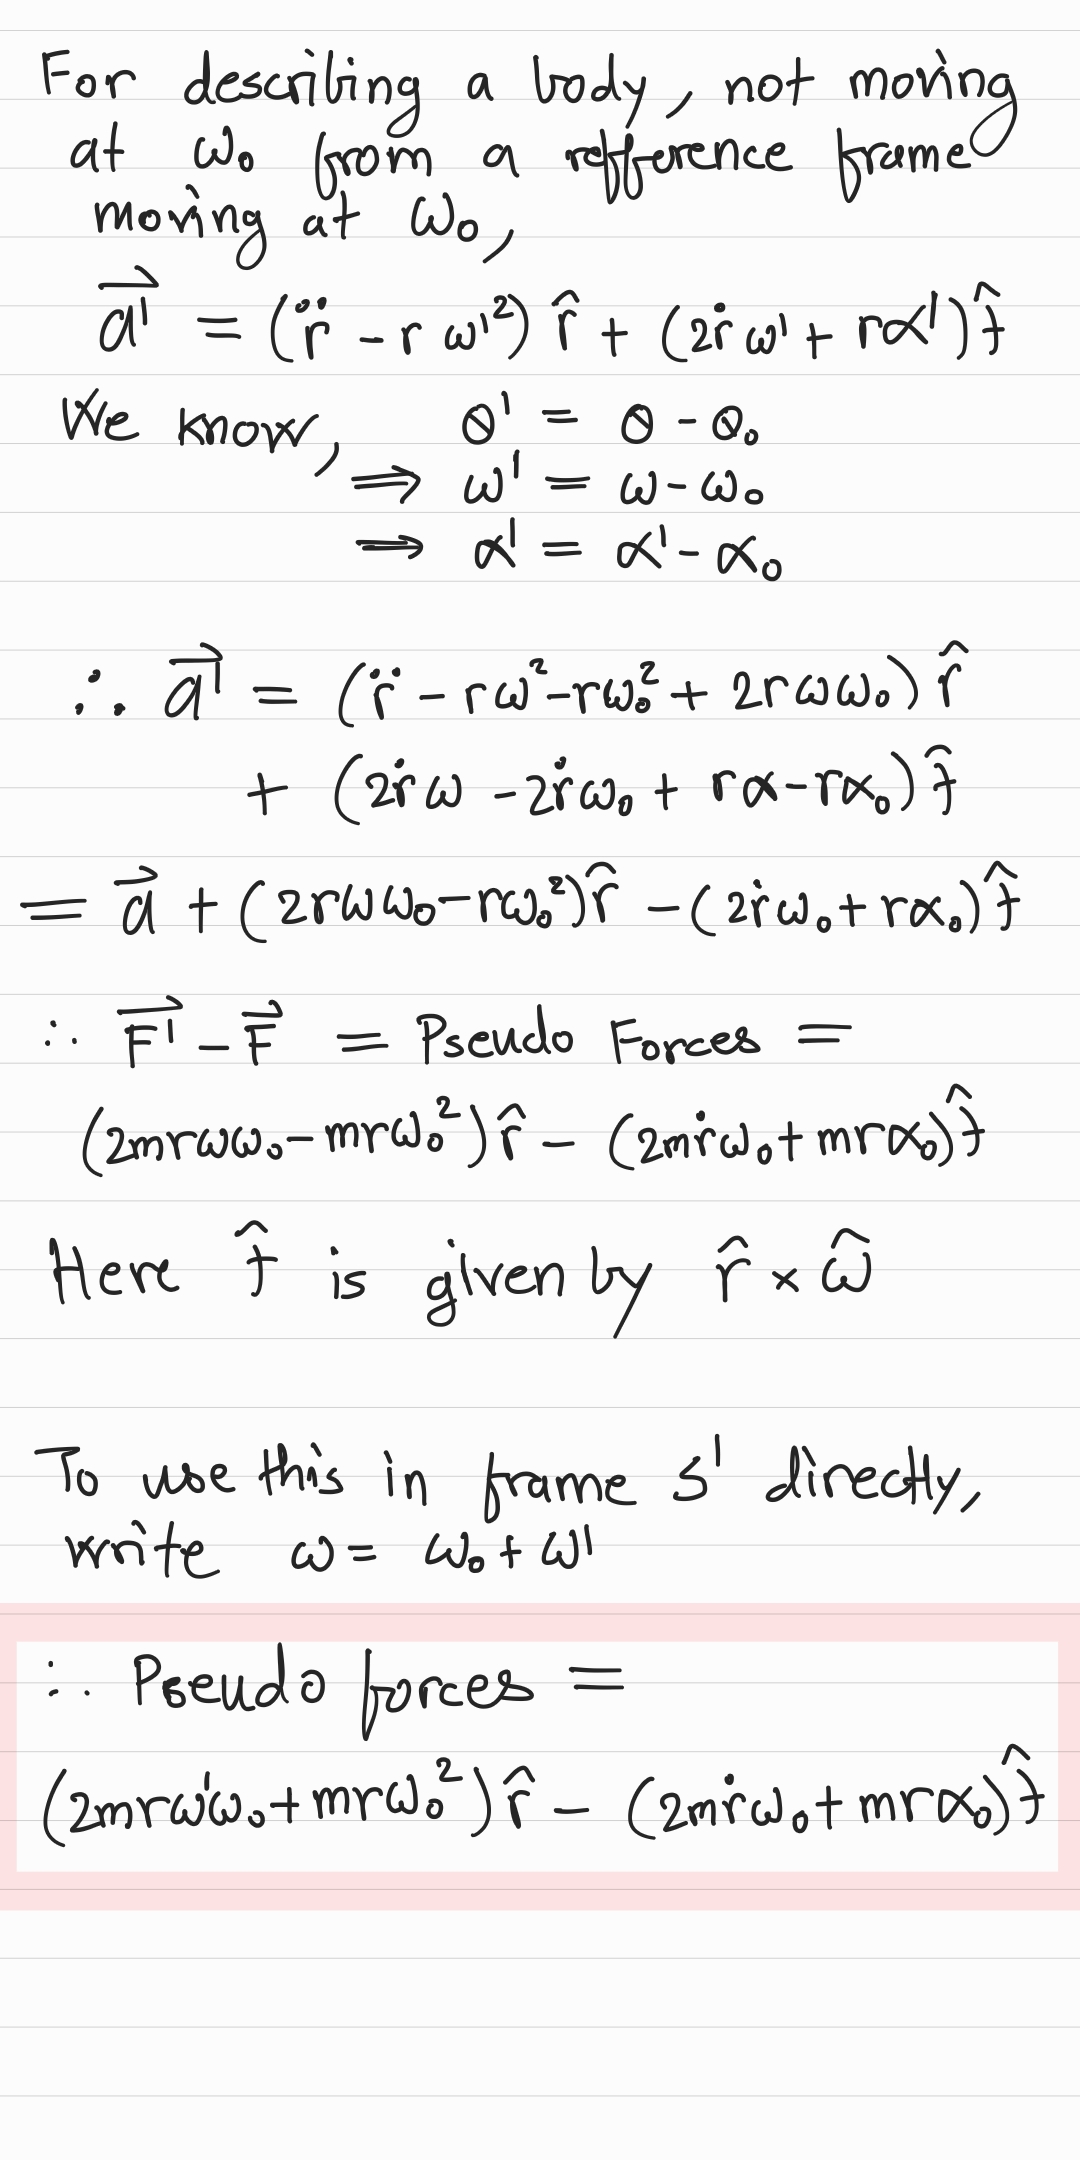 For describing a body, not moving
at ω₀ from a refference frame
moving at ω₀,
a⃗' = (r̈ - r ω'²) r̂ + (2ṙω' + rα') t̂
We know, θ' = θ - θ₀
⟹ ω' = ω - ω₀
⟹ α' = α' - α₀
∴ a⃗' = (r̈ - rω² - rω₀² + 2rωω₀) r̂
+ (2ṙω - 2ṙω₀ + rα - rα₀) t̂
= a⃗ + (2rωω₀ - rω₀²) r̂ - (2ṙω₀ + rα₀) t̂
∴ F⃗' - F⃗ = Pseudo Forces =
(2mrωω₀ - mrω₀²) r̂ - (2mṙω₀ + mrα₀) t̂
Here t̂ is given by r̂ × ω̂
To use this in frame S' directly,
write ω = ω₀ + ω'
∴ Pseudo forces =
(2mrω'ω₀ + mrω₀²) r̂ - (2mṙω₀ + mrα₀) t̂